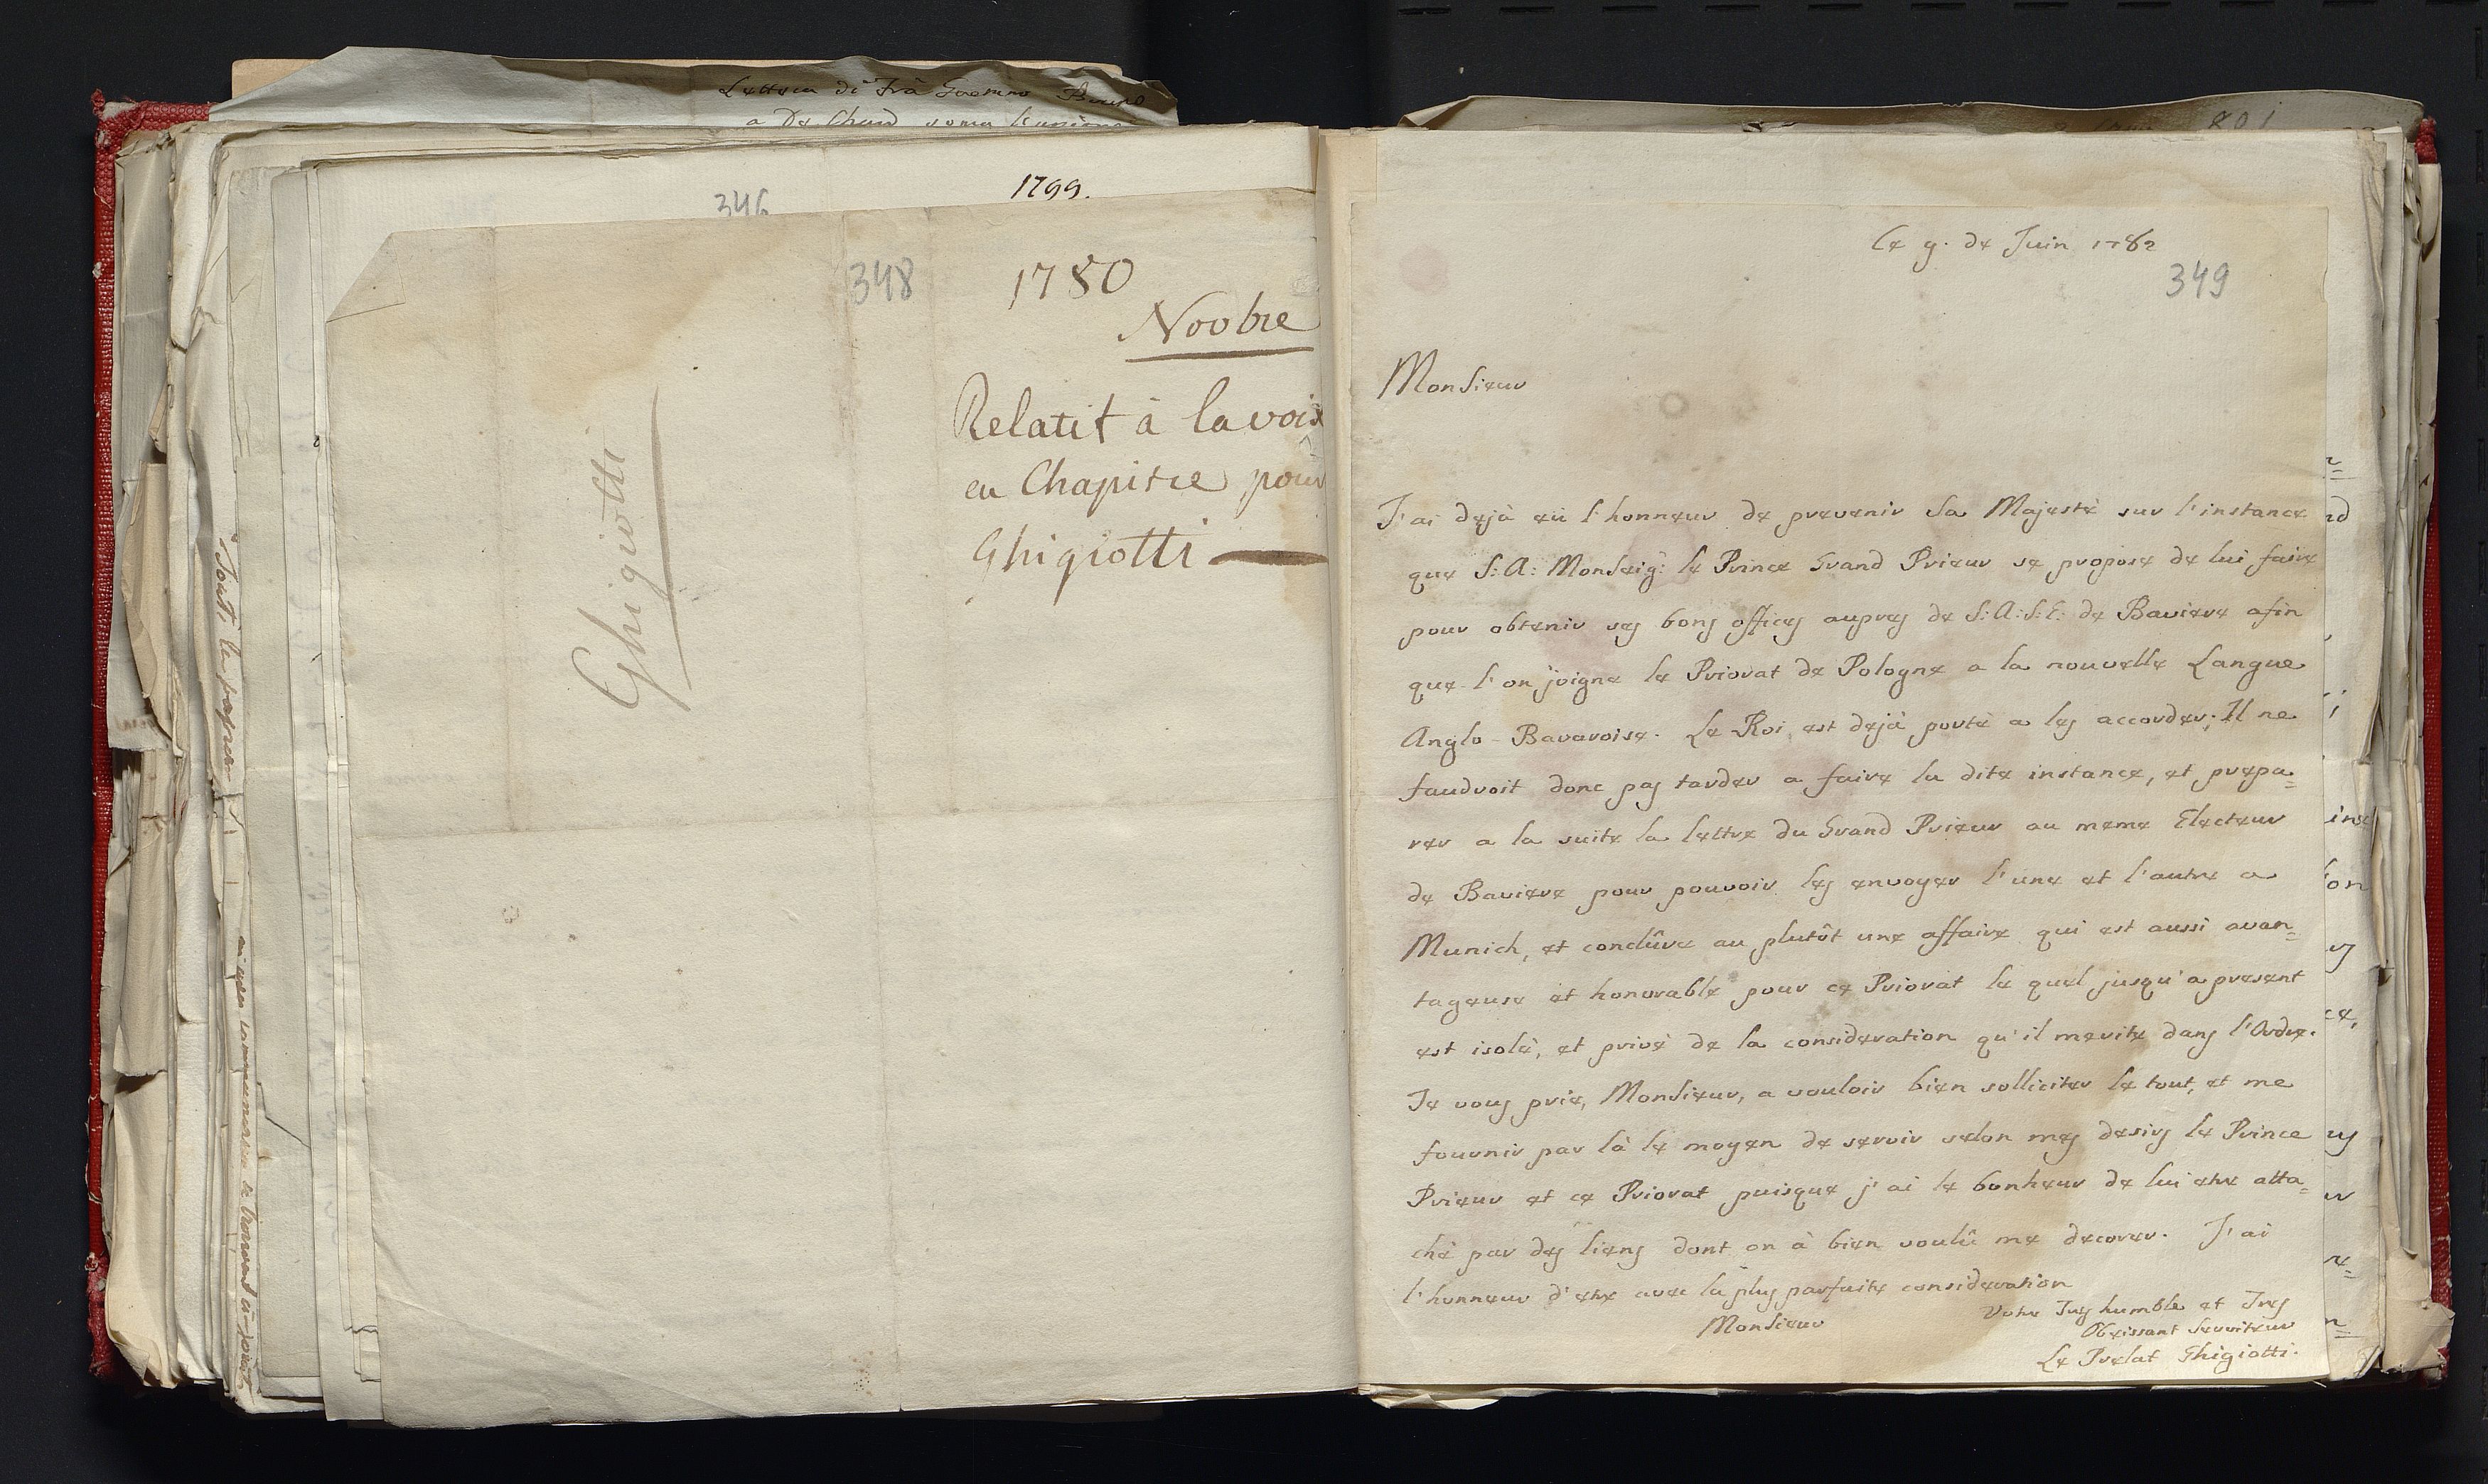 Lettera di Frà
1799.
346
348
1780
Novbre
Relatif à la voix
en Chapitre pour
Ghigiotti
Ghigiotti
Ce 9. de Juin 1782
349
Monsieur
J'ai dejà eü l'honneur de prevenir Sa Majestè sur l'instance
que S: A: Monseig: le Prince Grand Prieur se propose de lui faire
pour obtenir ses bons offices aupres de S: A: S: E: de Baviere afin
que l'on joigne le Priorat de Pologne a la nouvelle Langue
Anglo-Bavaroise. Le Roi est dejà portè a les accorder; Il ne
faudroit donc pas tarder a faire la dite instance, et prepa=
rer a la suite la lettre du Grand Prieur au meme Electeur
de Baviere pour pouvoir les envoyer l'une et l'autre a
Munich, et conclûre au plutôt une affaire qui est aussi avan=
tageuse et honorable pour ce Priorat le quel jusqu'a present
est isolè, et privè de la consideration qu'il merite dans l'Ordre.
Je vous prie, Monsieur, a vouloir bien solliciter le tout, et me
fournir par là le moyen de servir selon mes desirs le Prince
Prieur et ce Priorat puisque j'ai le bonheur de lui etre atta=
chè par des liens dont on à bien voulû me decorer. J'ai
l'honneur d'etre avec la plus parfaite consideration
Monsieur
Votre Tres humble et Tres
Obeissant Serviteur
Le Prelat Ghigiotti.